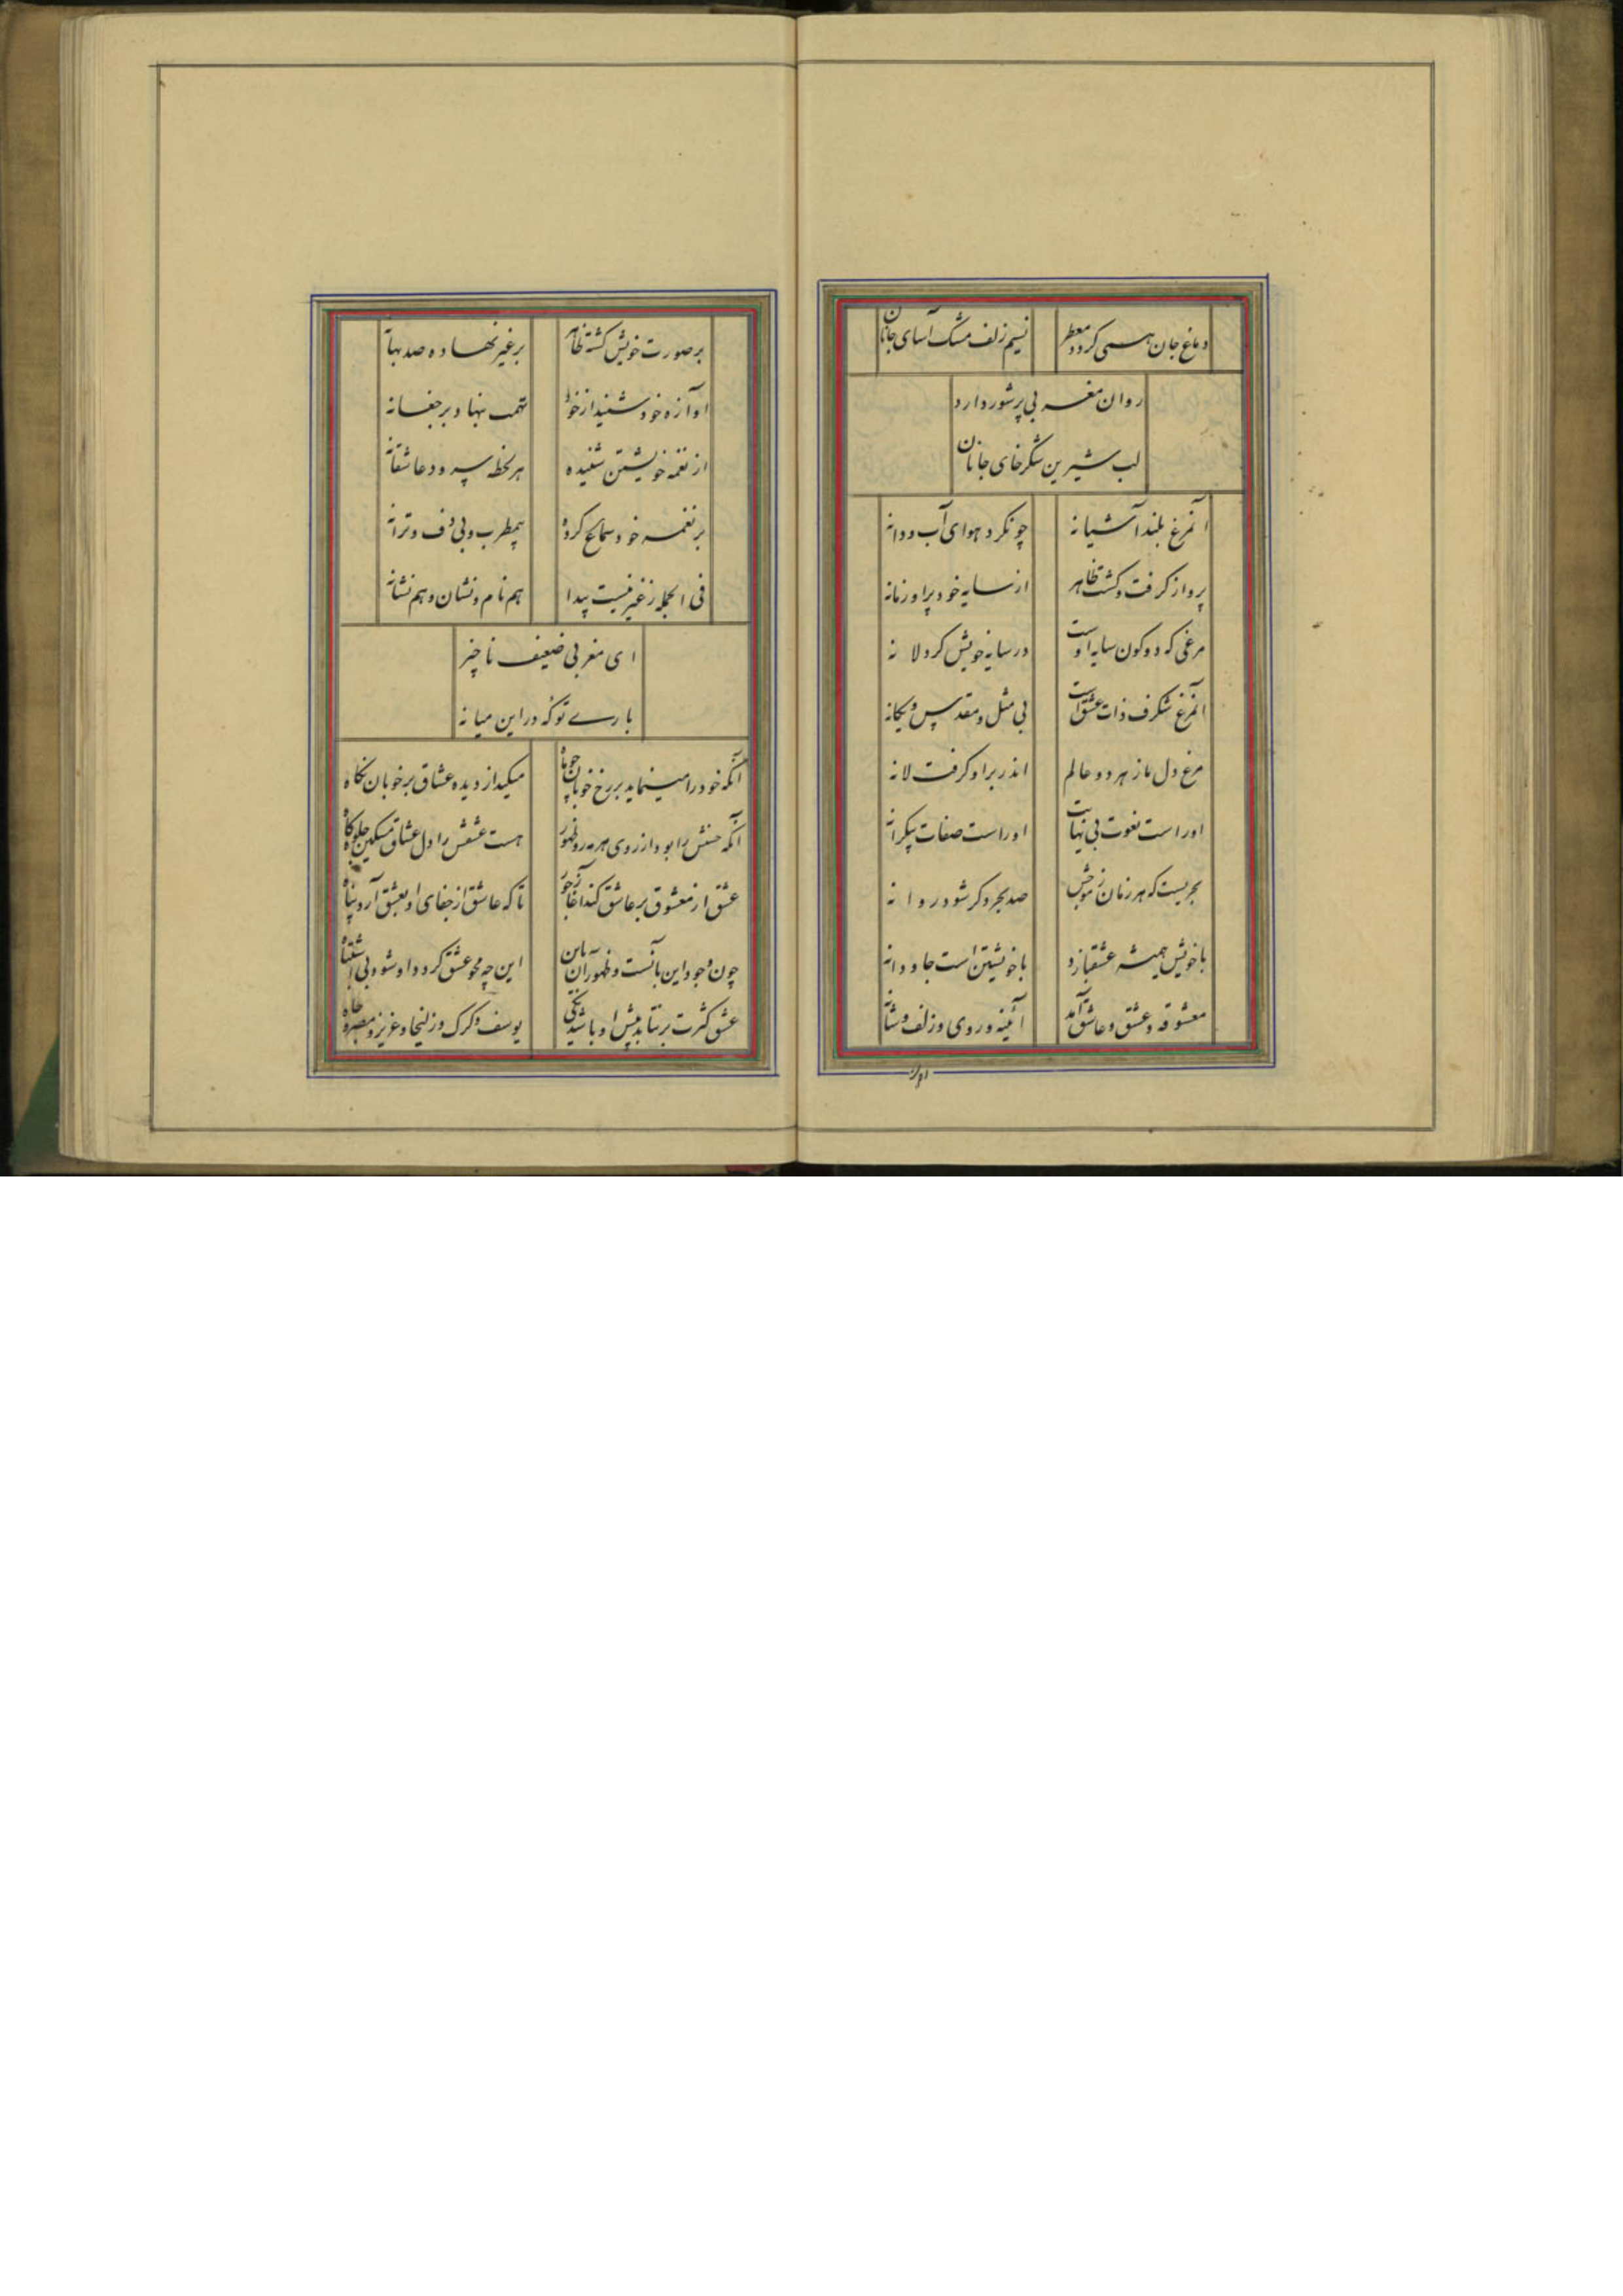 دماغ جان همی کردد معطر نسیم زلف مشک آسای جانان
روان مغربی پرشور دارد
لب شیرین شکرخای جانان
آنمرغ بلند آشیانه چونکرد هوای آب و دانه
پرواز کرفت و کشت ظاهر از سایه خود پر او زمانه
مرغی که دو کون سایه اوست در سایه خویش کرد لانه
آنمرغ شکرف ذات عشق است بی مثل و مقدس و یکانه
مرغ دل ما ز هر دو عالم اندر بر او کرفت لانه
اوراست نعوت بی نهایت اوراست صفات بیکرانه
بحریست که هر زمان ز موجش صد بحر دکر شود روانه
با خویش همیشه عشقبازد با خویشتن است جاودانه
معشوقه و عشق و عاشق آمد آئینه و روی و زلف و شانه
بر صورت خویش کشته ظاهر بر غیر نهاده صد بهانه
آوازه خود شنید از خود تهمت بنهاد بر چغانه
از نغمه خویشتن شنیده هر لحظه سرود عاشقانه
بر نغمه خود سماع کرده بیمطرب و بی دف و ترانه
فی الجمله ز غیر نیست پیدا هم نام و نشان و هم نشانه
ای مغربی ضعیف ناچیز
بارے تو که در این میانه
آنکه خود را مینماید بر رخ خوبان چو ماه میکند از دیده عشاق بر خوبان نکاه
آنکه حسنش را بود از روی هر مه رو ظهور هست عشقش را دل عشاق مسکین جلوه کاه
عشق از معشوق بر عاشق کند آغاز جور تا که عاشق از جفای او بعشق آرد پناه
چون وجود این بآنست و ظهور آن باین این چه محو عشق کردد او شود بی اشتباه
عشق کثرت برنتابد پیش او باشد یکی یوسف و کرک و زلیخا و عزیز و مصر و جاه